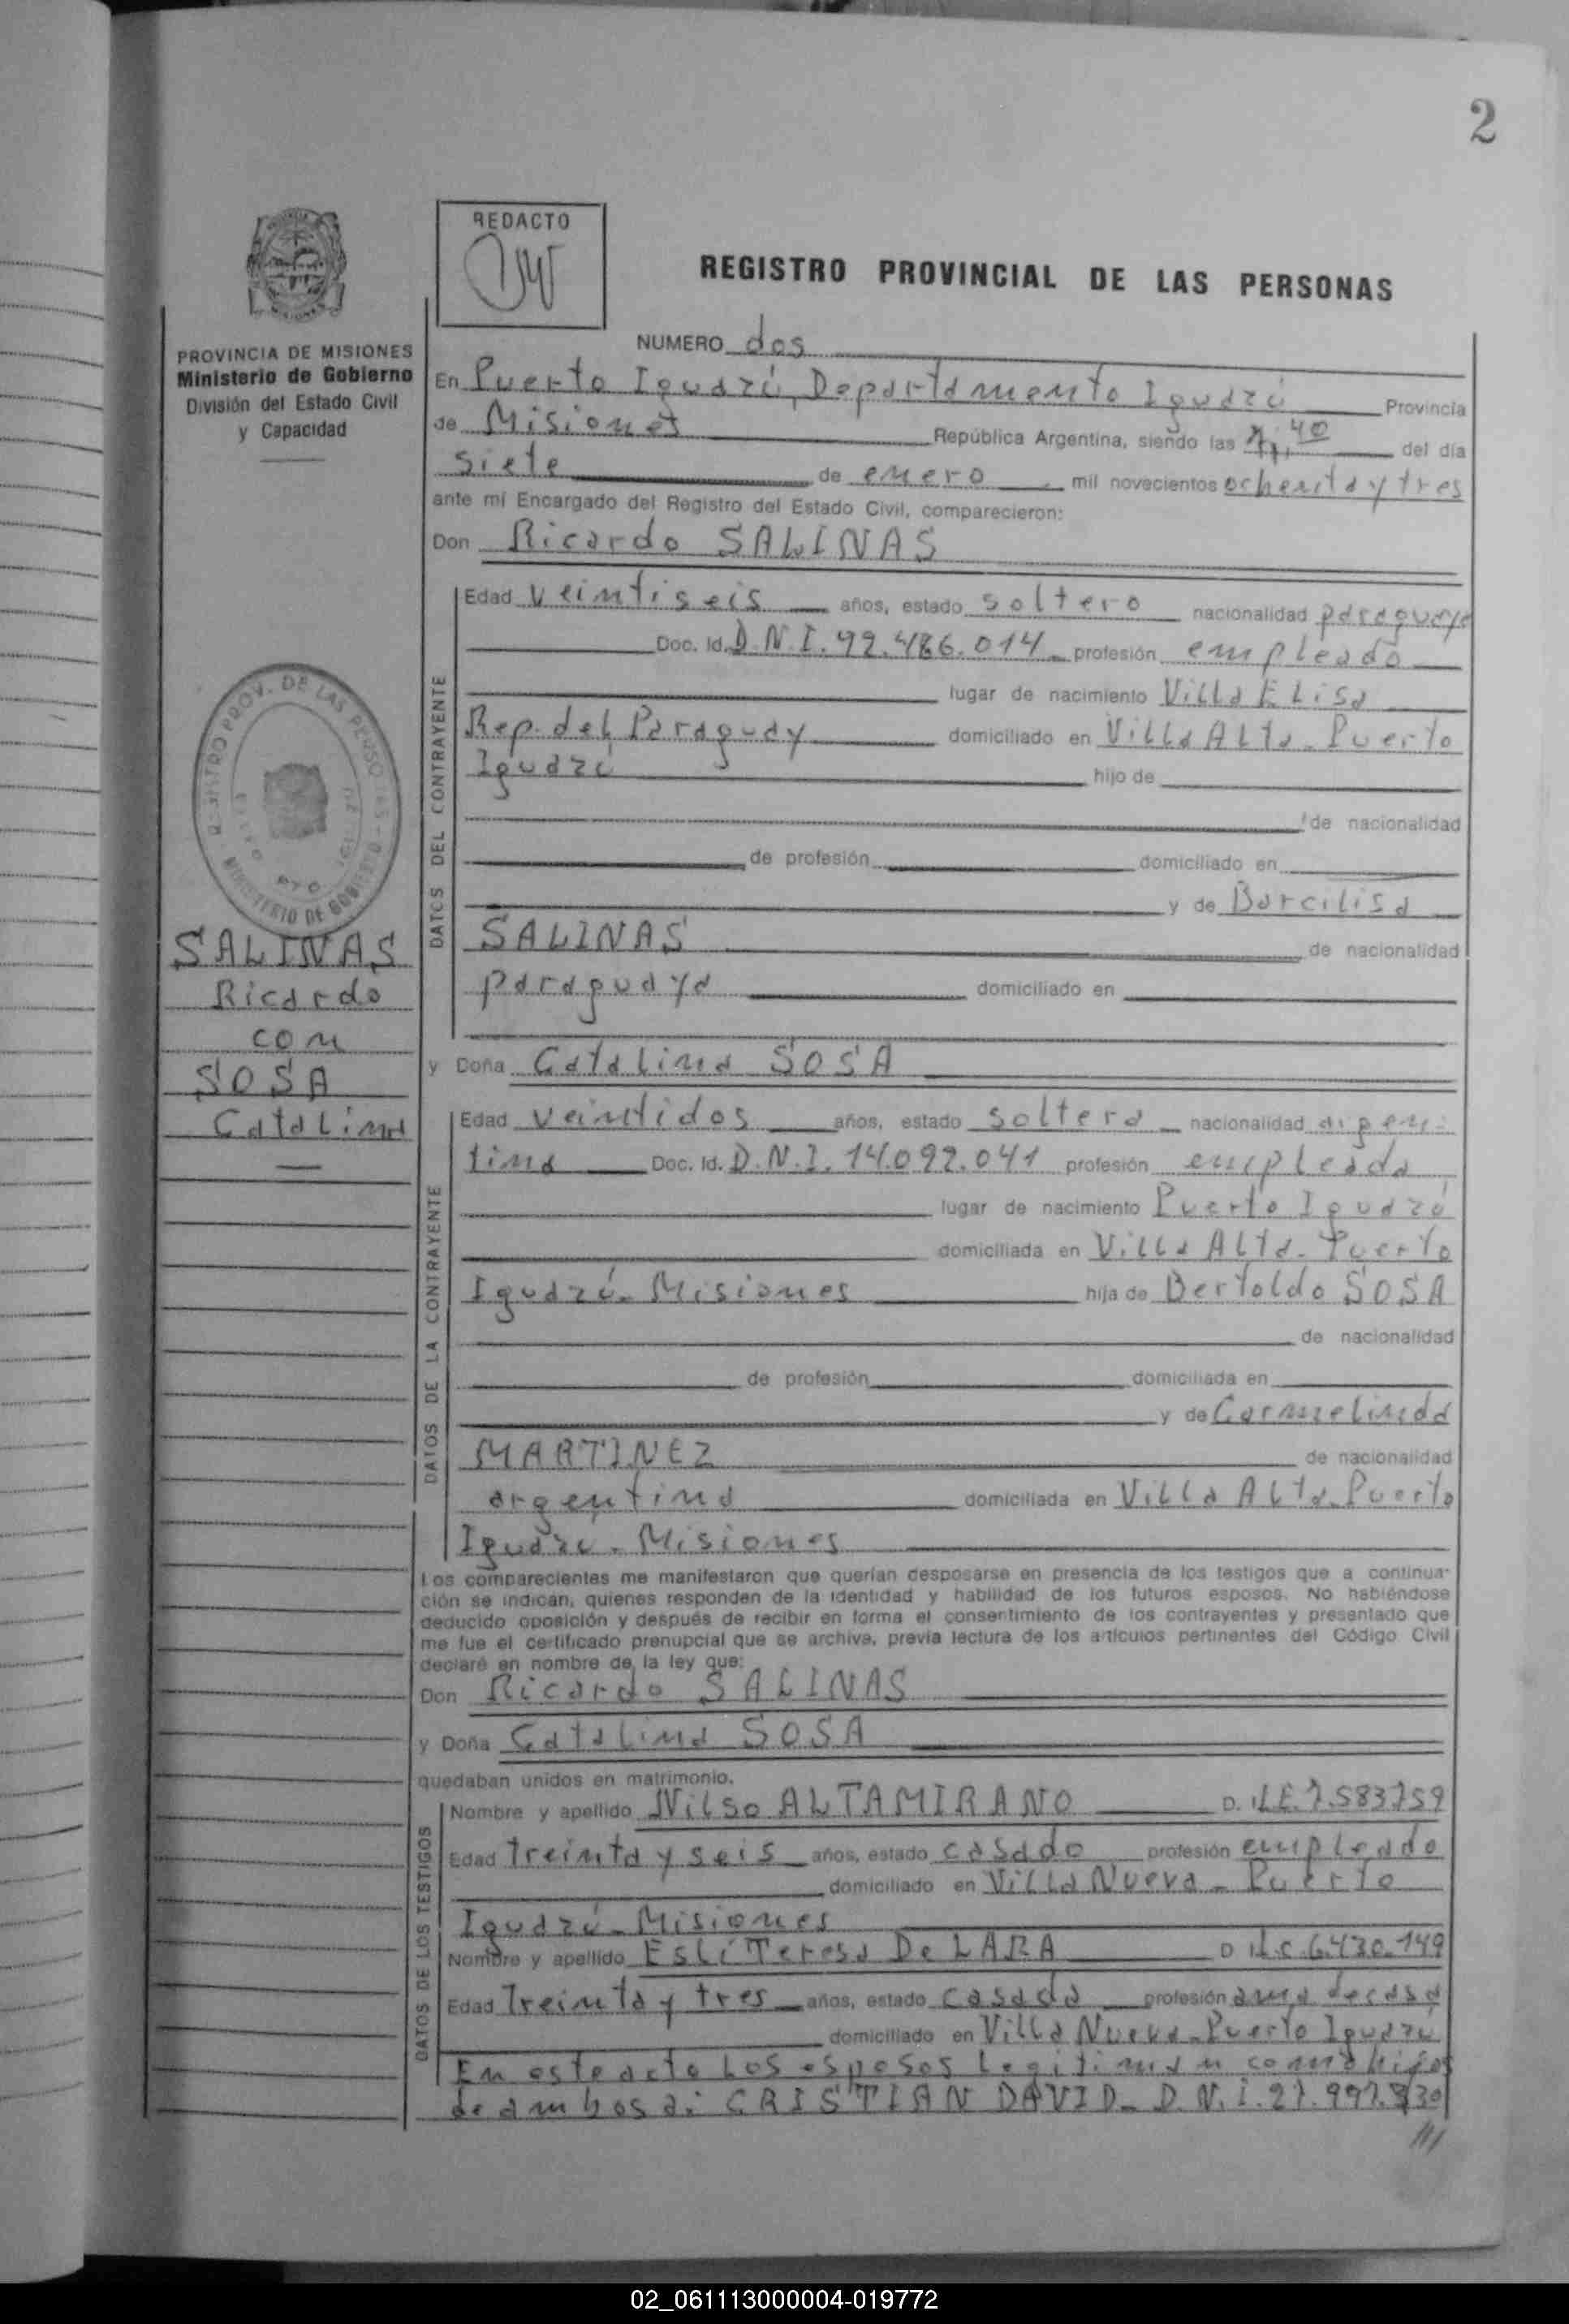 2
REDACTO
REGISTRO PROVINCIAL DE LAS PERSONAS
PROVINCIA DE MISIONES
Ministerio de Gobierno
División del Estado Civil
y Capacidad
SALINAS
Ricardo
con
SOSA
Catalina
NUMERO dos
En Puerto Iguazú, Departamento Iguazú Provincia
de Misiones República Argentina, siendo las 40 del día
siete de enero mil novecientos ochenta y tres
ante mí Encargado del Registro del Estado Civil, comparecieron:
Don Ricardo SALINAS
DATOS DEL CONTRAYENTE
Edad veintiseis años, estado soltero nacionalidad paraguaya
Doc. Id. D.N.I. 92.486.014 profesión empleado
lugar de nacimiento Villa Elisa
Rep. del Paraguay domiciliado en Villa Alta - Puerto
Iguazú hijo de
de nacionalidad
de profesión domiciliado en
y de Barcilisa
SALINAS de nacionalidad
paraguaya domiciliado en
y Doña Catalina SOSA
DATOS DE LA CONTRAYENTE
Edad veintidos años, estado soltera nacionalidad argen-
tina Doc. Id. D.N.I. 14.092.041 profesión empleada
lugar de nacimiento Puerto Iguazú
domiciliada en Villa Alta - Puerto
Iguazú - Misiones hija de Bertoldo SOSA
de nacionalidad
de profesión domiciliada en
y de Carmelinda
MARTINEZ de nacionalidad
argentina domiciliada en Villa Alta - Puerto
Iguazú - Misiones
Los comparecientes me manifestaron que querían desposarse en presencia de los testigos que a continua-
ción se indican, quienes responden de la identidad y habilidad de los futuros esposos. No habiéndose
deducido oposición y después de recibir en forma el consentimiento de los contrayentes y presentado que
me fue el certificado prenupcial que se archiva, previa lectura de los artículos pertinentes del Código Civil
declaré en nombre de la ley que:
Don Ricardo SALINAS
y Doña Catalina SOSA
quedaban unidos en matrimonio.
DATOS DE LOS TESTIGOS
Nombre y apellido Nilso ALTAMIRANO D. I. L.E. 7.583759
Edad treinta y seis años, estado casado profesión empleado
domiciliado en Villa Nueva - Puerto
Iguazú - Misiones
Nombre y apellido Eslí Teresa De LARA D. I. L.C. 6.430.149
Edad Treinta y tres años, estado casada profesión ama de casa
domiciliado en Villa Nueva - Puerto Iguazú
En este acto los esposos legitiman como hijos
de ambos a: CRISTIAN DAVID - D.N.I. 27.997.
02_061113000004-019772